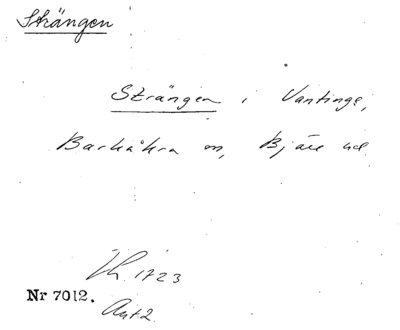 Strängen
Strängen i Vantinge,
Barkåkra sn, Bjäre hd
Lh. 1723
Nr 7012.
Avt. 2